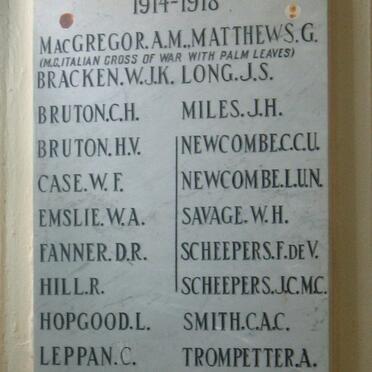 1914-1918
MACGREGOR.A.M., MATTHEWS.G.
(M.C, ITALIAN CROSS OF WAR WITH PALM LEAVES)
BRACKEN.W.J.K. LONG.J.S.
BRUTON.C.H. MILES.J.H.
BRUTON.H.V. NEWCOMBE.C.C.U.
CASE.W.F. NEWCOMBE.L.U.N.
EMSLIE.W.A. SAVAGE.W.H.
FANNER.D.R. SCHEEPERS.F.DE V.
HILL.R. SCHEEPERS.J.C.M.C.
HOPGOOD.L. SMITH.C.A.C.
LEPPAN.C. TROMPETTER.A.